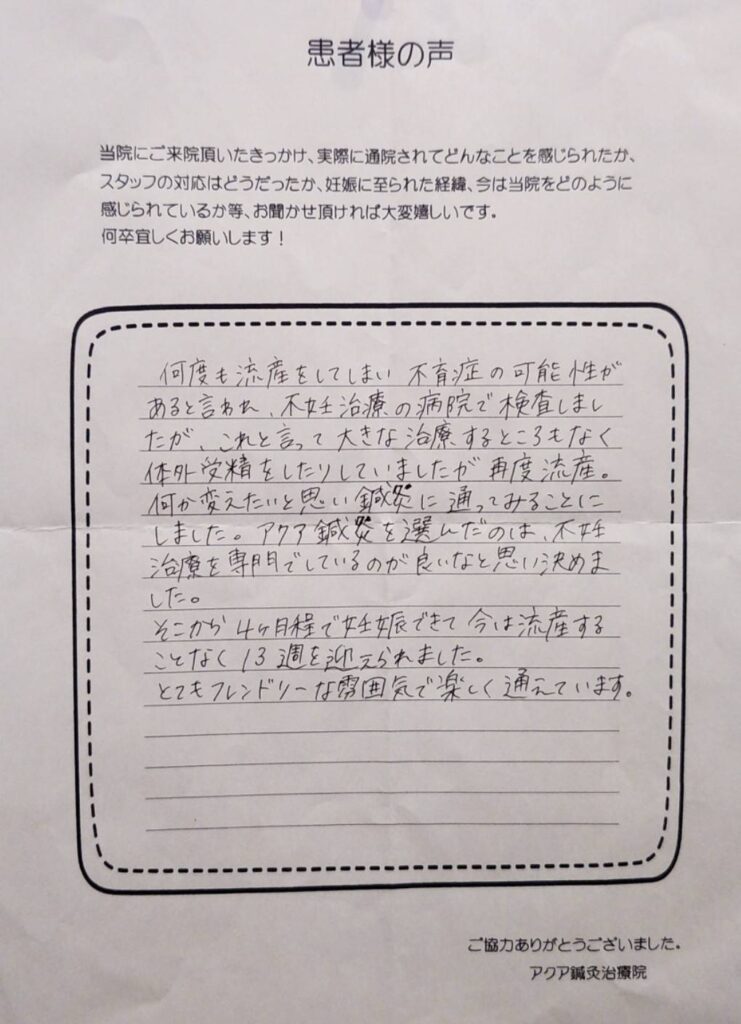 患者様の声
当院にご来院頂いたきっかけ、実際に通院されてどんなことを感じられたか、
スタッフの対応はどうだったか、妊娠に至られた経緯、今は当院をどのように
感じられているか等、お聞かせ頂ければ大変嬉しいです。
何卒宜しくお願いします！
何度も流産をしてしまい 不育症の可能性が
あると言われ、不妊治療の病院で検査しまし
たが、これと言って大きな治療するところもなく
体外受精をしたりしていましたが再度流産。
何か変えたいと思い鍼灸に通ってみることに
しました。アクア鍼灸を選んだのは、不妊
治療を専門でしているのが良いなと思い決めま
した。
そこから4ヶ月程で妊娠できて今は流産する
ことなく13週を迎えられました。
とてもフレンドリーな雰囲気で楽しく通えています。
ご協力ありがとうございました。
アクア鍼灸治療院